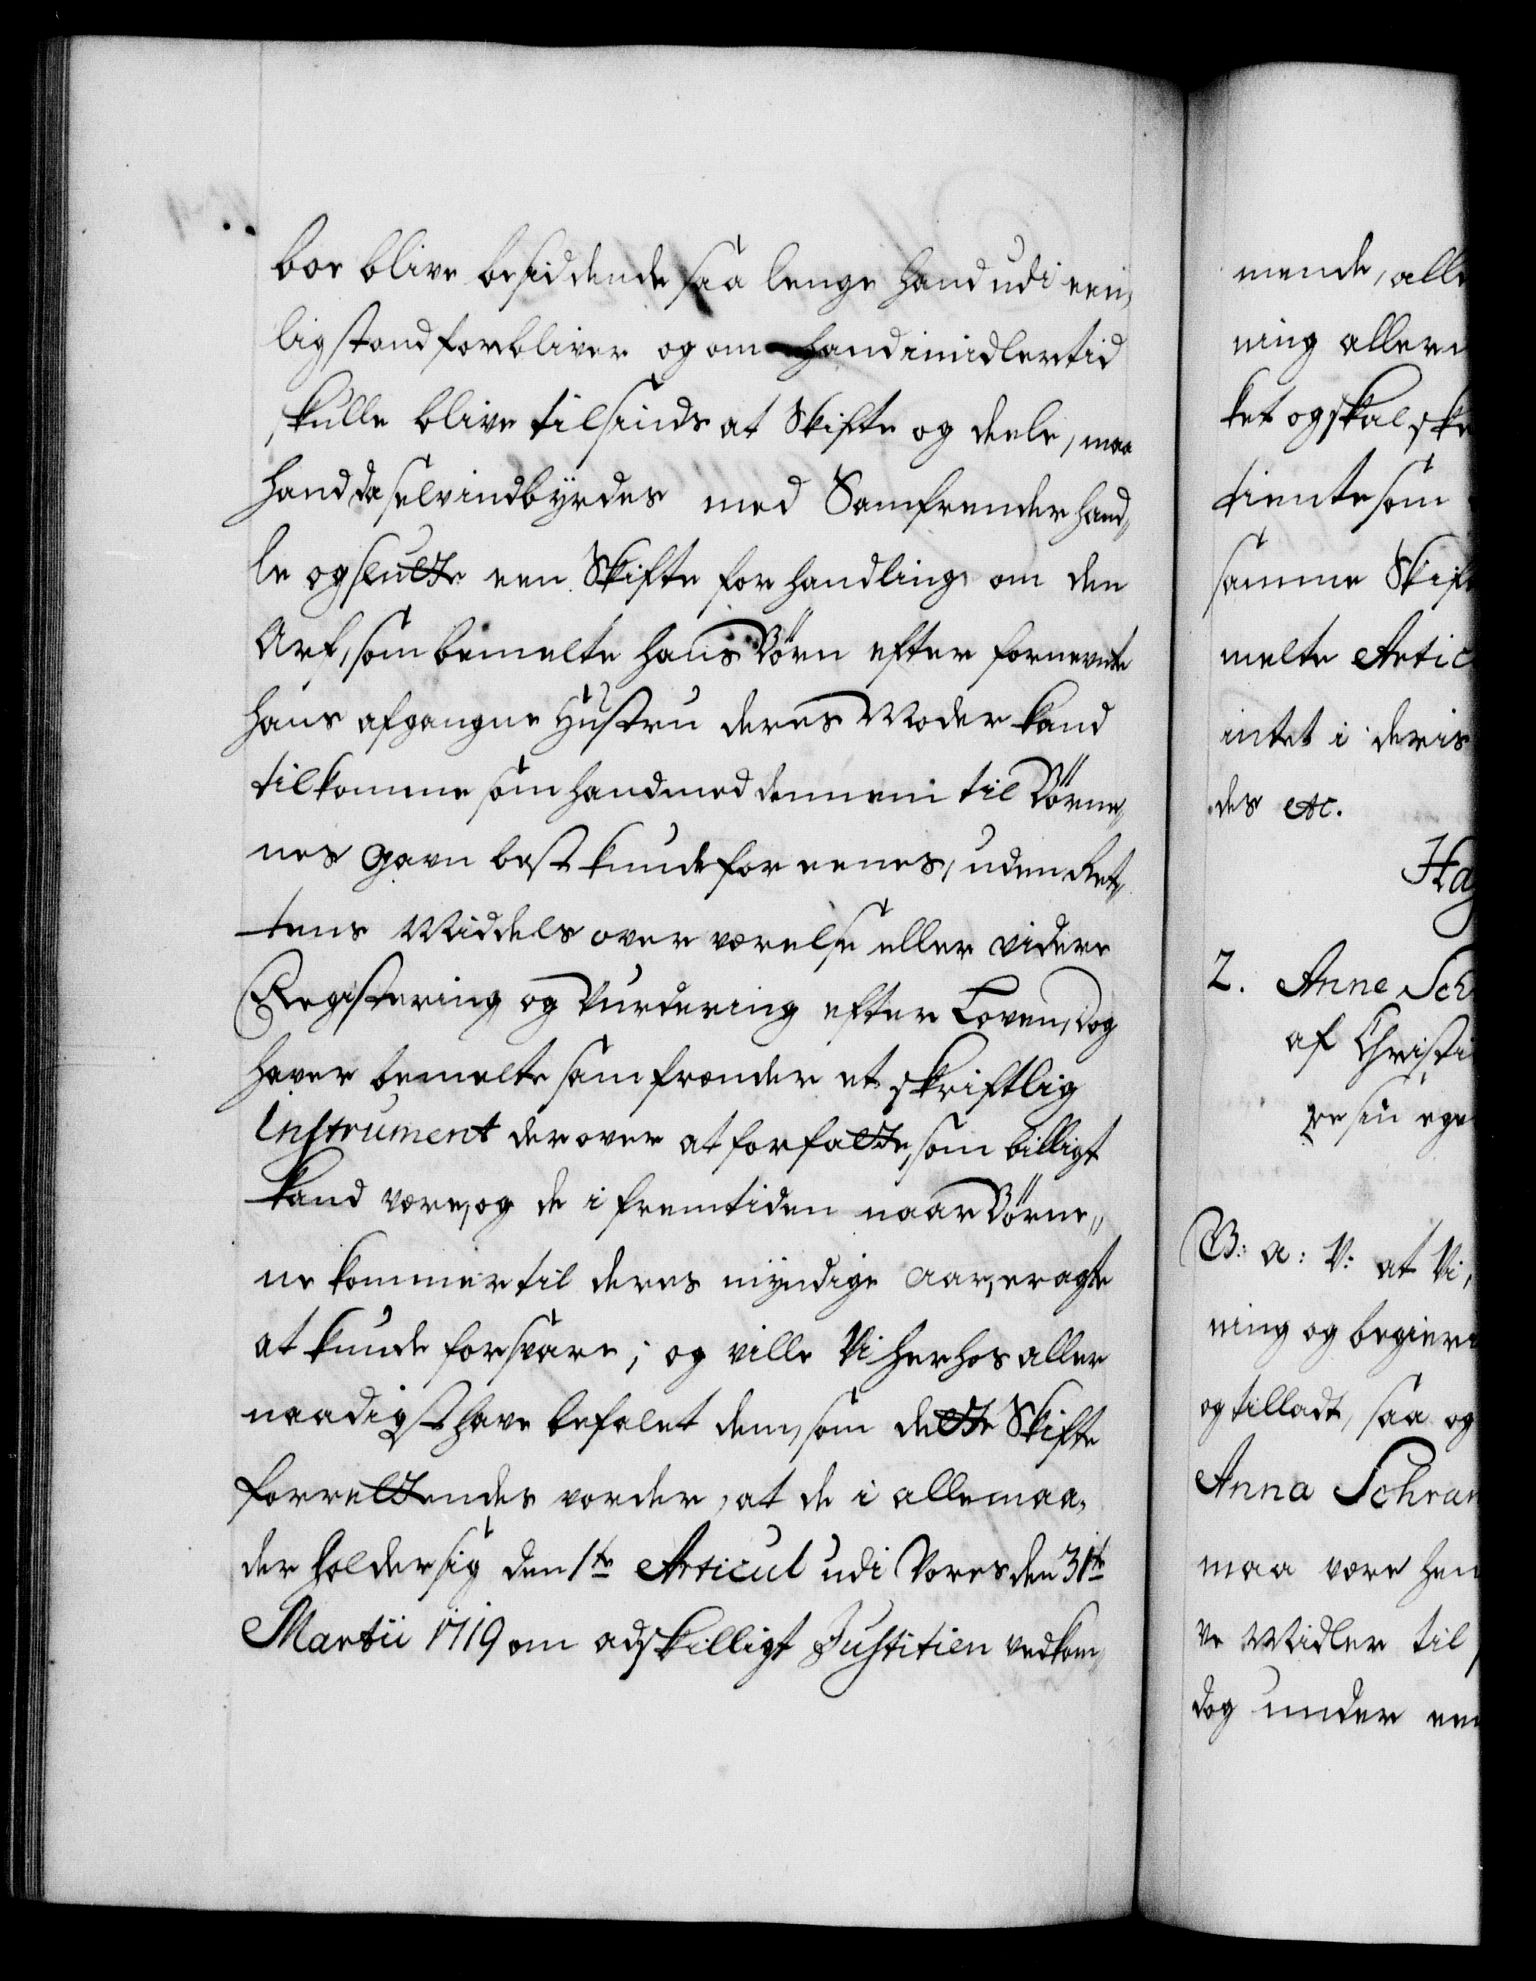 boe blive besiddende saa lenge hand udi een,,
lig stand forbliver og om hand imidlertid
skulle blive tilsinds at Skifte og deele, maa
hand da selv indbyrdes med Samfrender hand,,
le og slutte een Skifte forhandling om den
Arf, som bemelte hans Börn efter fornevnte
hans afgangne Hustru deres Moder kand
tilkomme som hand med dennem til Börne,,
nes gavn best kunde foreenes, uden Ret,,
tens Middels over værelse eller videre
Registering og Vurdering efter Loven, Dog
haver bemelte samfrænder et skriftlig
Instrument derover at forfatte, som billigt
kand være, og de i fremtiden naar Börne,,
ne kommer til deres myndige aar, eragte
at kunde forsvare; og ville Vi herhos aller
naadigst have befalet dem, som dette Skifte
forrettendes vorder, at de i alle maa,,
der holder sig den 1te Articul udi Vores den 31te
Martii 1719 om adskilligt Justitien vedkom,,
mende, alle
ning aller
ket og skal ske
tiente som
samme Skif
melte Artic
intet i deris
des etc.
Hag
2. Anne Sch
af Christi
re sin ege
B: a: V: at Vi,
ning og begier
og tilladt, saa og
Anna Schran
maa være hen
ve Midler til
dog under een